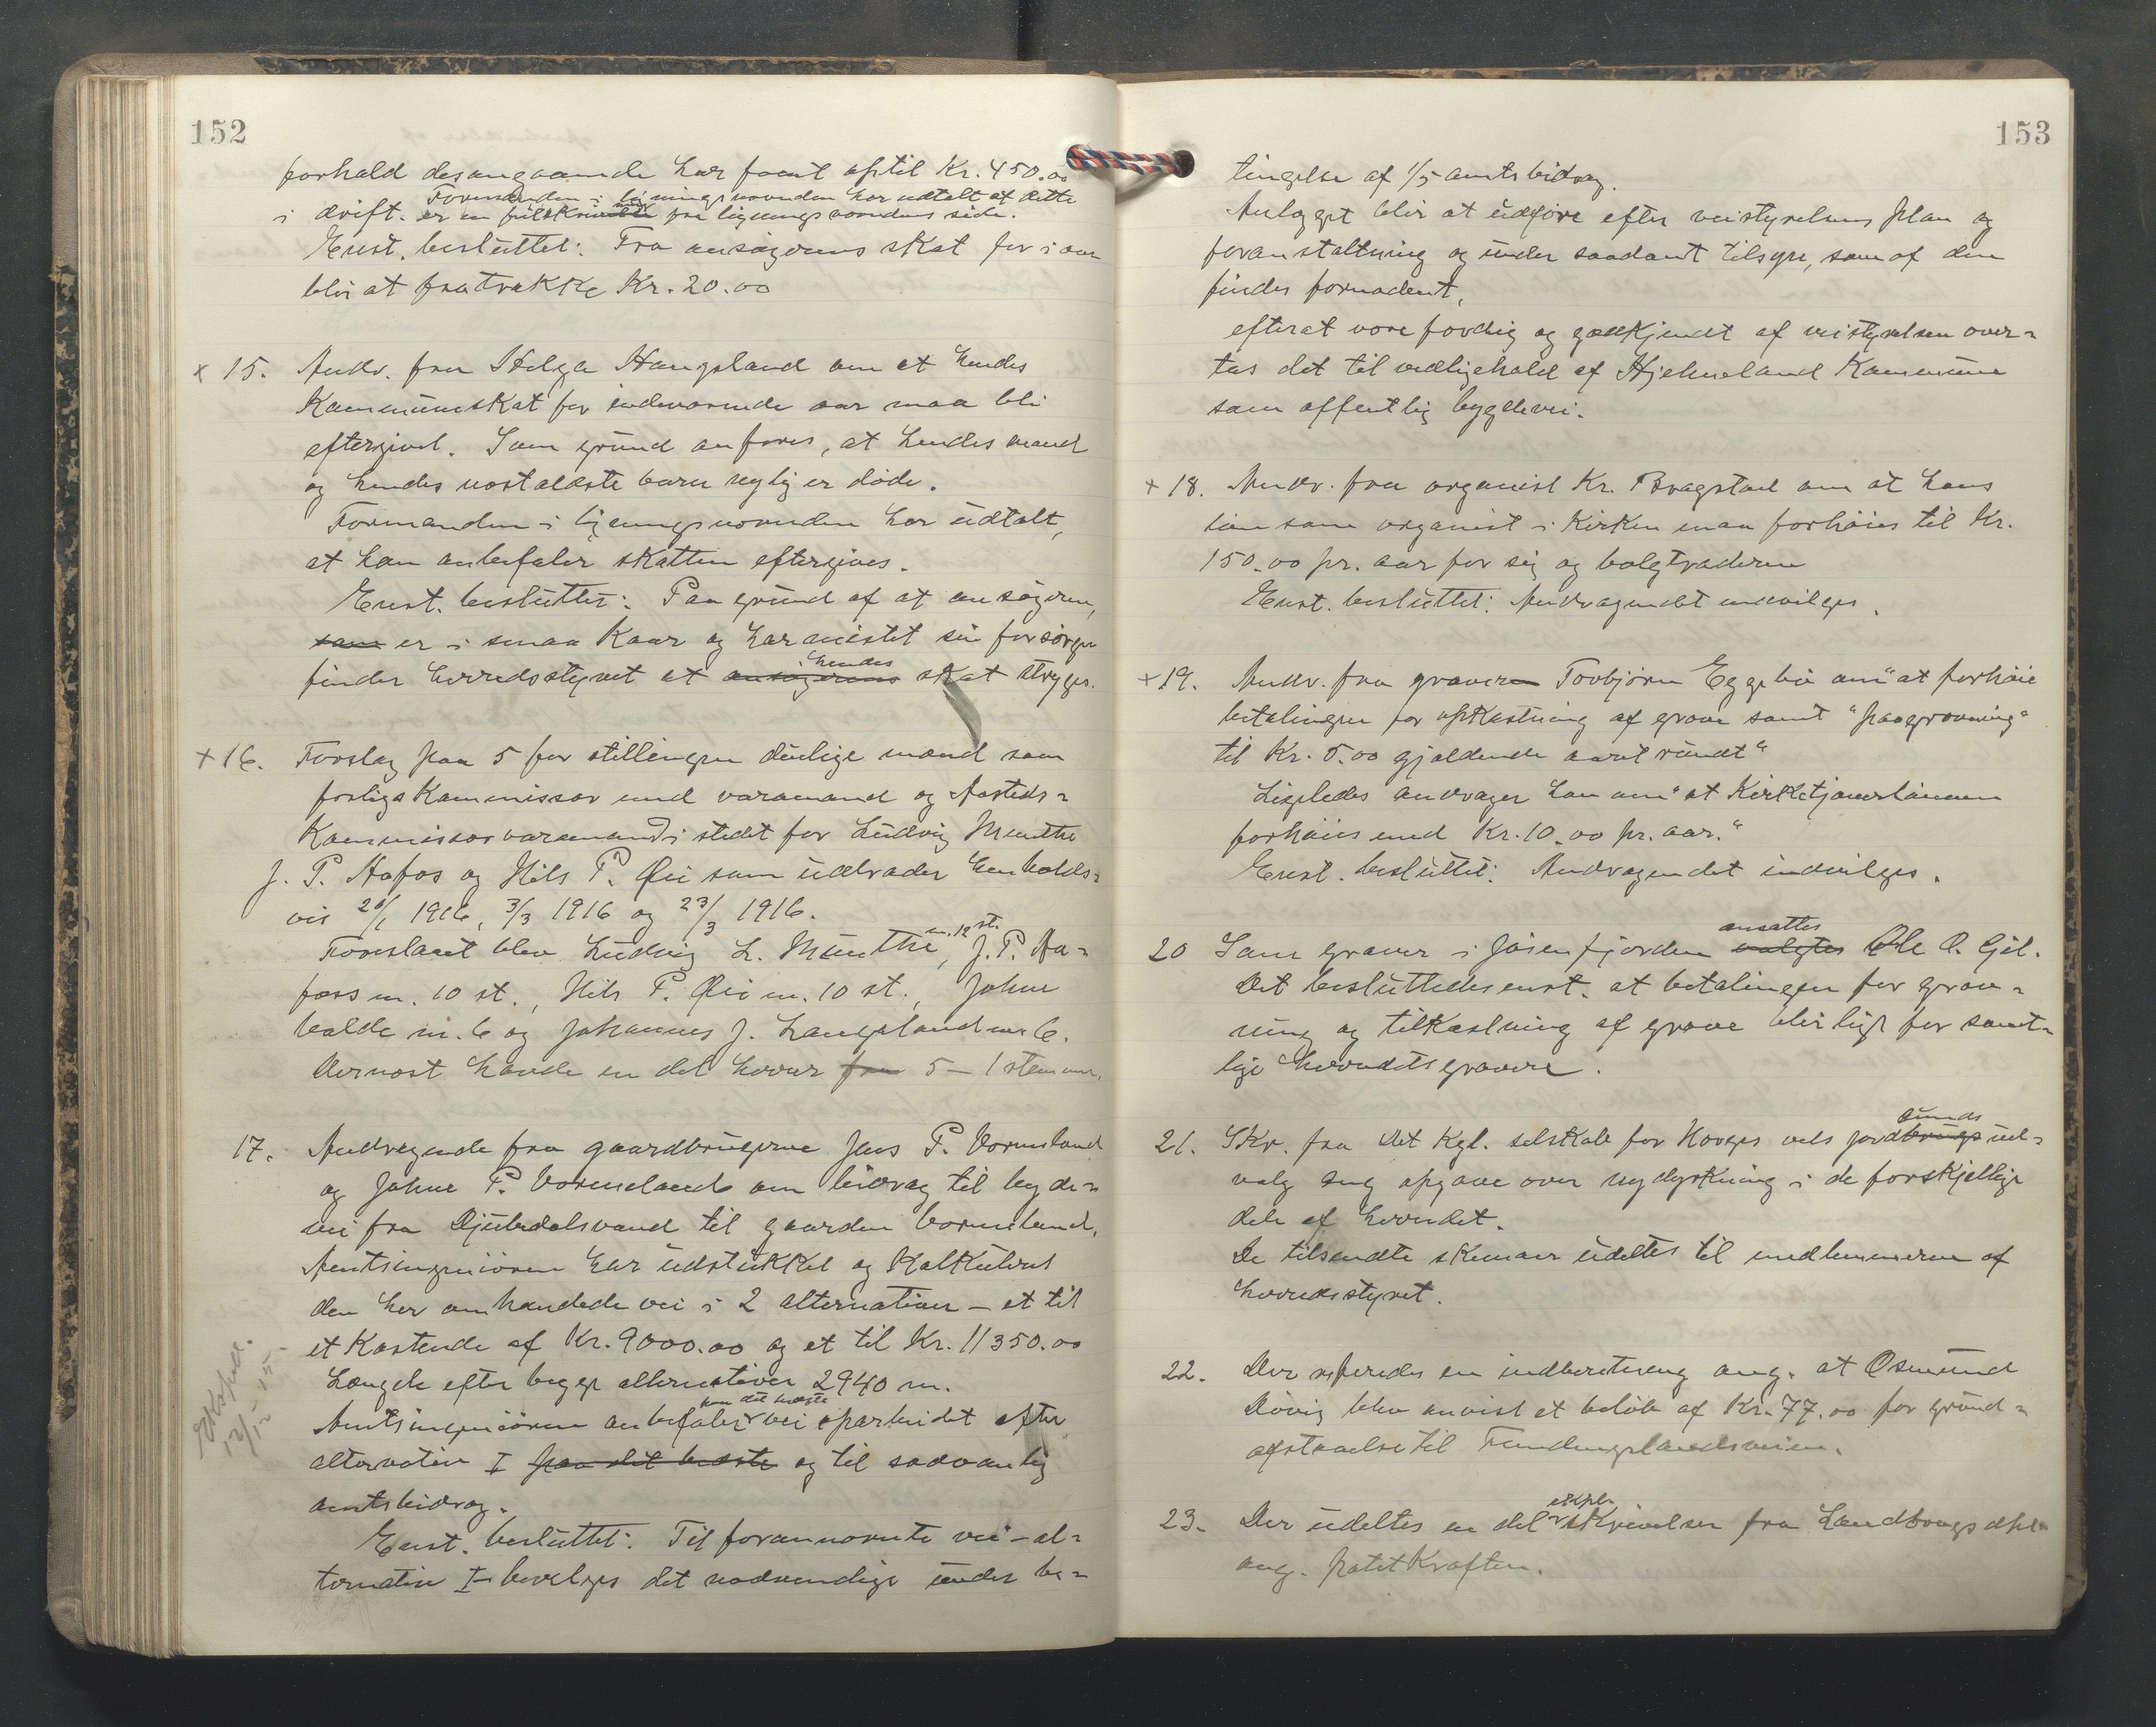 152
forhold desangaaende har faaet optil Kr. 450.00
Formanden i ligningsnævnden har udtalt at dette
i drift. er en feilskrivning fra ligningsnævndens side.
Enst. besluttet: Fra ansøgerens skat for i aar
blir at fratrække Kr. 20.00
x 15. Andr. fra Helga Haugsland om at hendes
Kommuneskat for indeværende aar maa bli
eftergivet. Som grund anføres, at hendes mand
og hendes næstældste barn nylig er døde.
Formanden i ligningsnævnden har udtalt,
at han anbefaler skatten eftergives.
Enst. besluttet: Paa grund af at ansøgeren,
som er i smaa Kaar og har mistet sin forsørger
hendes
finder herredsstyret at ansøgerens skat stryges.
+ 16. Forslag paa 5 for stillingen duelige mænd som
forligskommissær med varamand og Aasteds-
Kommissærvaramand i stedet for Ludvig Munthe
J. P. Aafos og Nils P. Øie som uttræder henholds-
vis 20/1 1916, 3/3 1916 og 23/3 1916.
m. 12 st.
Foreslaaet blev Ludvig L. Munthe, J. P. Aa-
foss m. 10 st., Nils P. Øie m. 10 st., Johne
Valde m. 6 og Johannes J. Langeland m. 6.
Dernæst havde en del herrer fra 5 – 1 stemmer.
17. Andragende fra gaardbrugerne Jens P. Vormeland
og Johne P. Vormeland om bidrag til bygde-
vei fra Djubedalsvand til gaarden Vormeland.
Amtsingeniøren har udstukket og Kalkuleret
den her omhandlede vei i 2 alternativer – et til
et Kostende af Kr. 9000.00 og et til Kr. 11350.00
Længde efter begge alternativer 2940 m.
paa det bedste
Amtsingeniøren anbefaler vei oparbeidet efter
alternativ I paa det bedste og til sædvanlig
amtsbidrag.
Enst. besluttet: Til forannævnte vei-al-
ternativ I bevilges det nødvendige under be-
Eksped.
12/12 15.
153
tingelse af 1/5 amtsbidrag.
Anlægget blir at udføre efter veistyrelsens plan og
foranstaltning og under saadant tilsyn, som af den
findes fornødent,
efterat være færdig og godkjendt af veistyrelsen over-
tas det til vedligehold af Hjelmeland Kommune
som offentlig bygdevei.
+ 18. Andr. fra organist Kr. Bragstad om at hans
løn som organist i Kirken maa forhøies til Kr.
150.00 pr. aar for sig og bælgtræderen
Enst. besluttet: Andragendet indvilges.
+ 19. Andr. fra graveren Torbjørn Eggebø om "at forhøie
betalingen for opkastning af grave samt "paagravning"
til Kr. 5.00 gjældende aaret rundt"
Ligeledes andrager han om "at Kirketjenerlønnen
forhøies med Kr. 10.00 pr. aar."
Enst. besluttet: Andragendet indvilges.
ansattes
20 Som graver i Jøsenfjorden valgtes Ole O. Gjil.
Det besluttedes enst. at betalingen for grav-
ning og tilkastning af grave blir ligt for samt-
lige herredets gravere.
bunds
21. Skr. fra Det Kgl. selskab for Norges vels jordbrugsud-
valg ang opgave over nydyrkning i de forskjellige
dele af herredet.
De tilsendte skemaer udeltes til medlemmerne af
herredsstyret.
22. Der refereredes en indberetning ang. at Osmund
Røvig blev anvist et beløb af Kr. 77.00 for grund-
afstaaelse til Fundingslandsveien.
expl.
23. Der udeltes en del skrivelser fra Landbrugsdpt.
ang. potetkraften.